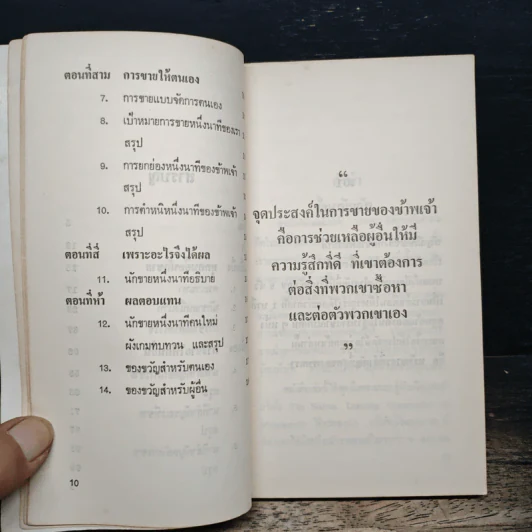 ตอนที่สาม การขายให้ตนเอง
7. การขายแบบจัดการตนเอง
8. เป้าหมายการขายหนึ่งนาทีของเรา
สรุป
9. การยกย่องหนึ่งนาทีของข้าพเจ้า
สรุป
10. การตำหนิหนึ่งนาทีของข้าพเจ้า
สรุป
ตอนที่สี่ เพราะอะไรจึงได้ผล
11. นักขายหนึ่งนาทีอธิบาย
ตอนที่ห้า ผลตอบแทน
12. นักขายหนึ่งนาทีคนใหม่
ผังเกมทบทวน และสรุป
13. ของขวัญสำหรับตนเอง
14. ของขวัญสำหรับผู้อื่น
10
“
จุดประสงค์ในการขายของข้าพเจ้า
คือการช่วยเหลือผู้อื่นให้มี
ความรู้สึกที่ดี ที่เขาต้องการ
ต่อสิ่งที่พวกเขาซื้อหา
และต่อตัวพวกเขาเอง
”